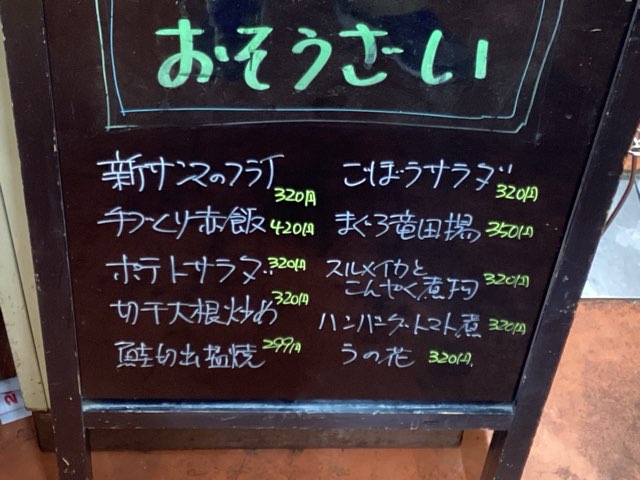 おそうざい
新サンマのフライ
320円
手づくり赤飯 420円
ポテトサラダ 320円
切干大根炒め 320円
鮭切出塩焼 299円
ごぼうサラダ
320円
まぐろ竜田揚 350円
スルメイカと
こんやく煮 320円
ハンバーグトマト煮 320円
うの花 320円
2